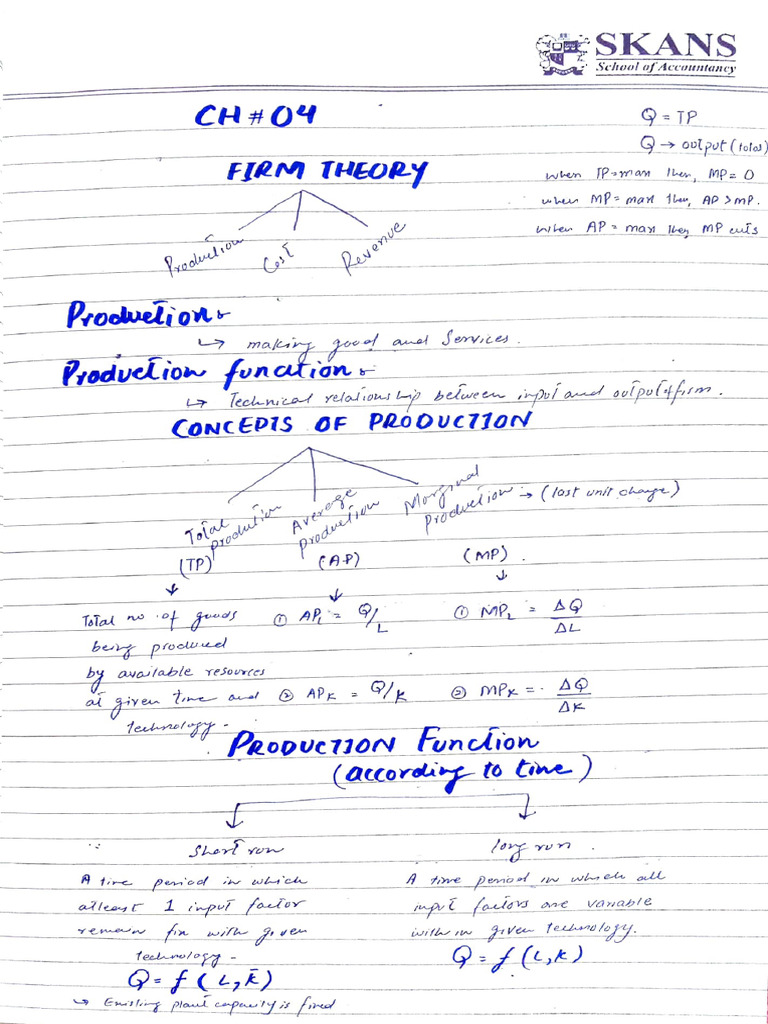 SKANS
School of Accountancy
CH # 04
Q = TP
Q → output (total)
FIRM THEORY
when TP=max then, MP = 0
when MP = max then, AP > MP.
when AP = max then, MP cuts
Production
Cost
Revenue
Production:-
↳ making good and Services.
Production function:-
↳ Technical relationship between input and output of firm.
CONCEPTS OF PRODUCTION
Total Production
Average Production
Marginal Production → (last unit change)
(TP) (AP) (MP).
Total no. of goods ① APL = Q/L ① MPL = ΔQ/ΔL
being produced
by available resources
at given time and ② APK = Q/K ② MPK = ΔQ/ΔK
technology.
PRODUCTION Function
(according to time)
Short run
A time period in which
atleast 1 input factor
remain fix with given
technology.
Q = f (L, K̄)
↳ Existing plant capacity is fixed
long run.
A time period in which all
input factors are variable
within given technology.
Q = f (L, K)